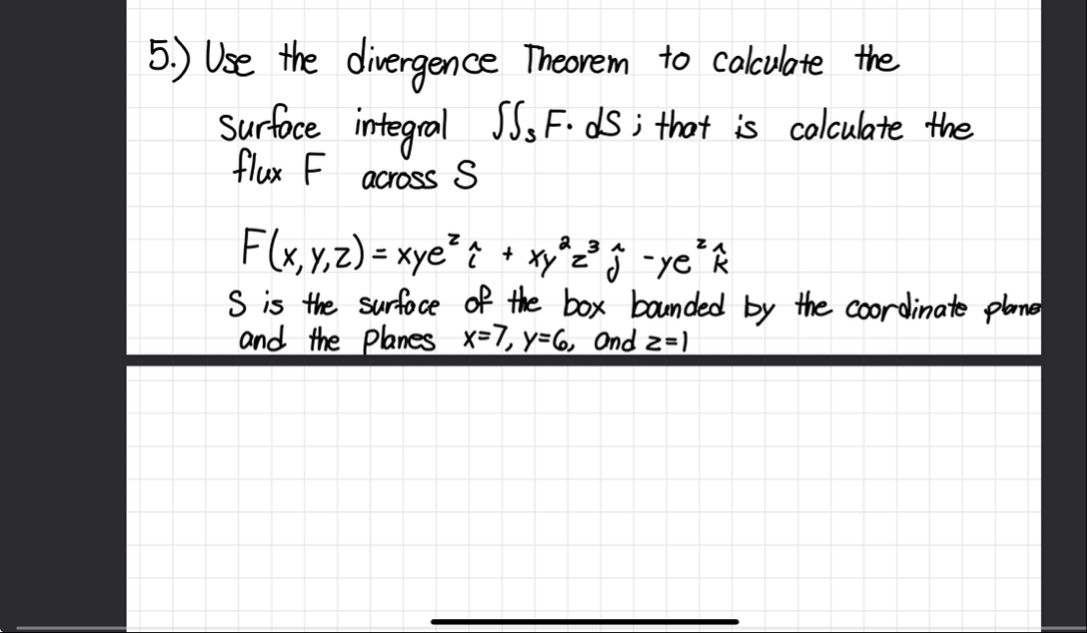 5.) Use the divergence Theorem to calculate the
surface integral ∬ₛ F · dS ; that is calculate the
flux F across S
F(x, y, z) = xyeᶻ î + xy²z³ ĵ - yeᶻ k̂
S is the surface of the box bounded by the coordinate plane
and the planes x=7, y=6, and z=1